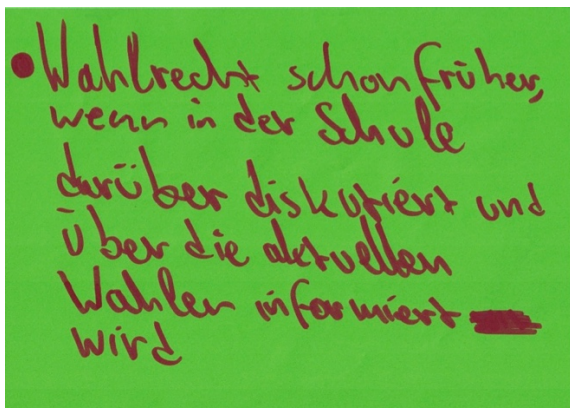 • Wahlrecht schon früher,
wenn in der Schule
darüber diskutiert und
über die aktuellen
Wahlen informiert
wird